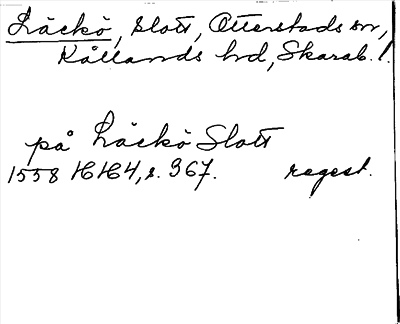 Läckö, slott, Otterstads sn,
Kållands hrd, Skarab. l.
på Läckö Slott
1558 HH4, s. 367. regest.